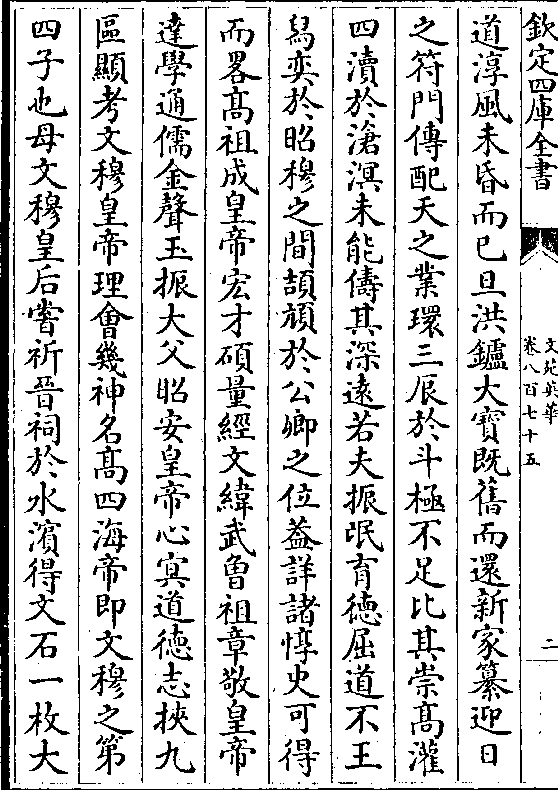 欽定四庫全書
文苑英華
卷八百七十五
二
道淳風未昏而已旦洪鑪大寳既舊而還新家纂迎日
之符門傳配天之業環三辰於斗極不足比其崇髙灌
四瀆於滄溟未能儔其深逺若夫振氓育德屈道不王
舄奕於昭穆之間頡頏於公卿之位葢詳諸惇史可得
而畧髙祖成皇帝宏才碩量經文緯武曾祖章敬皇帝
達學通儒金聲玉振大父昭安皇帝心冥道徳志挾九
區顯考文穆皇帝理㑹幾神名髙四海帝即文穆之第
四子也母文穆皇后嘗祈晉祠於水濱得文石一枚大